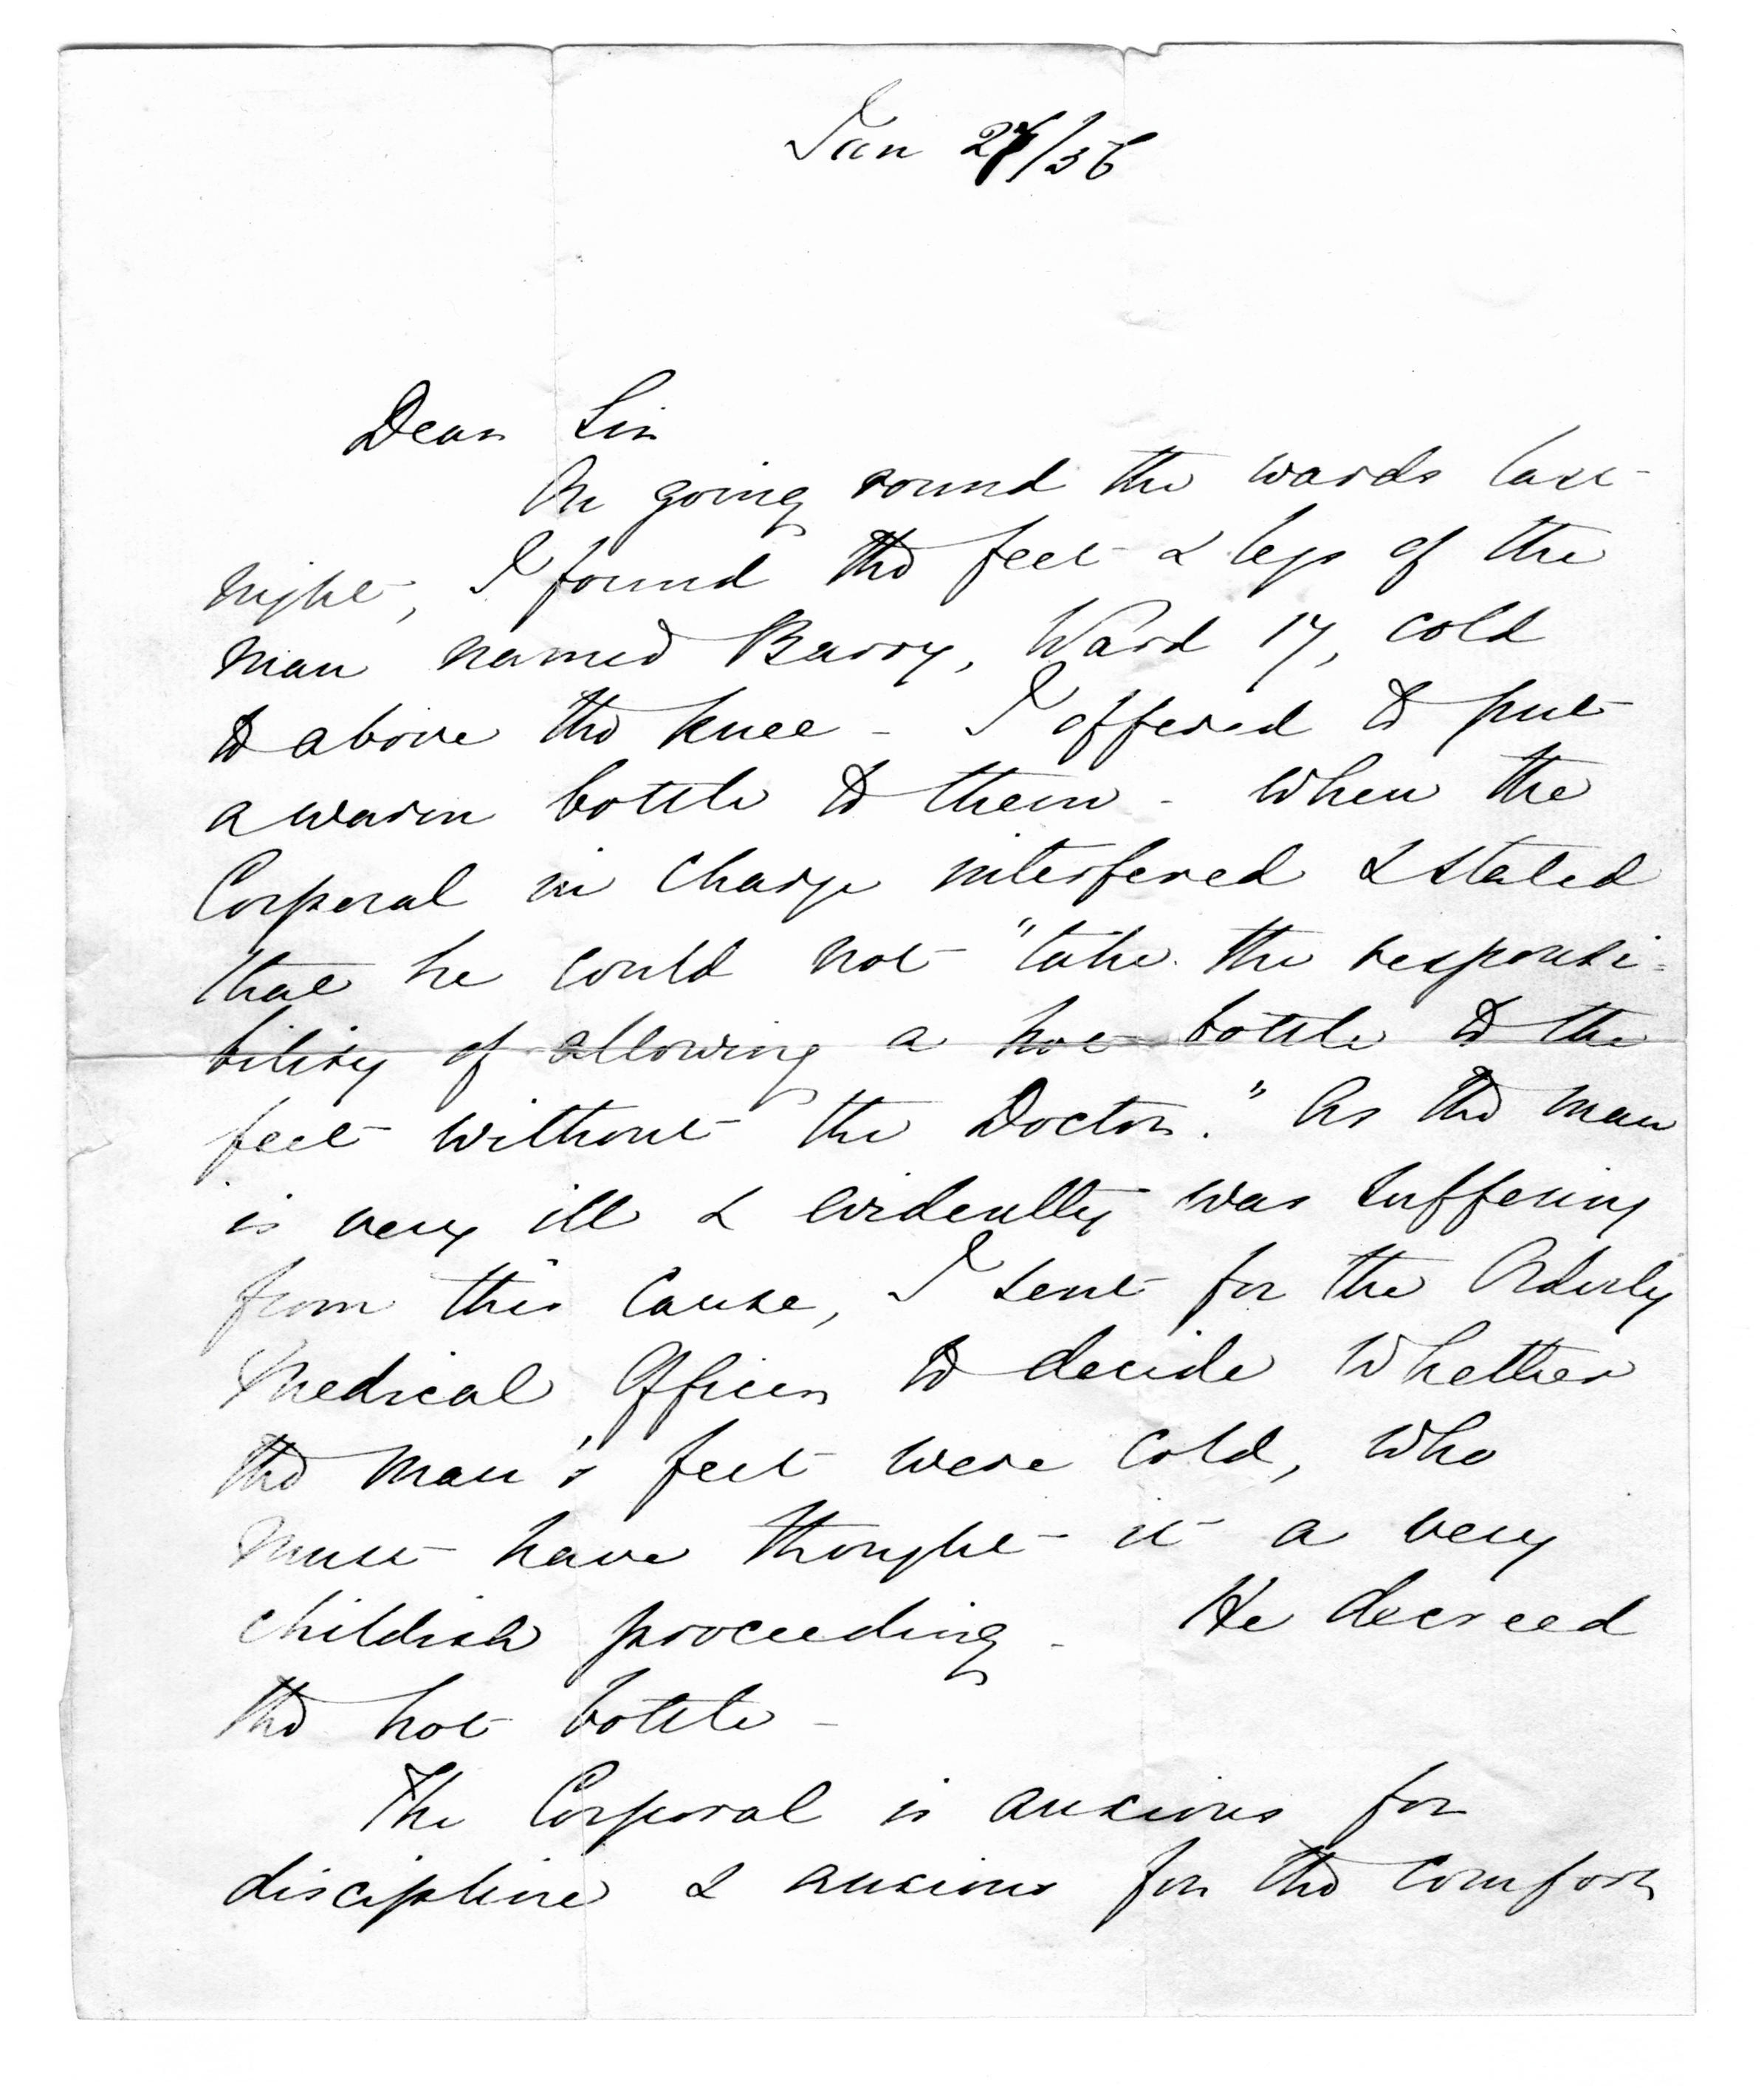 Jan 27/56
Dear Sir
On going round the wards last
night, I found the feet & legs of the
man named Barry, Ward 17, cold
to above the knee - I offered to put
a warm bottle to them - when the
Corporal in charge interfered & stated
that he could not "take the responsi=
bility of allowing a hot bottle to the
feet without the Doctor." As the man
is very ill & evidently was suffering
from this cause, I sent for the Orderly
Medical Officer to decide whether
the man's feet were cold, who
must have thought it a very
childish proceeding - He decreed
the hot bottle -
The Corporal is anxious for
discipline & anxious for the comfort